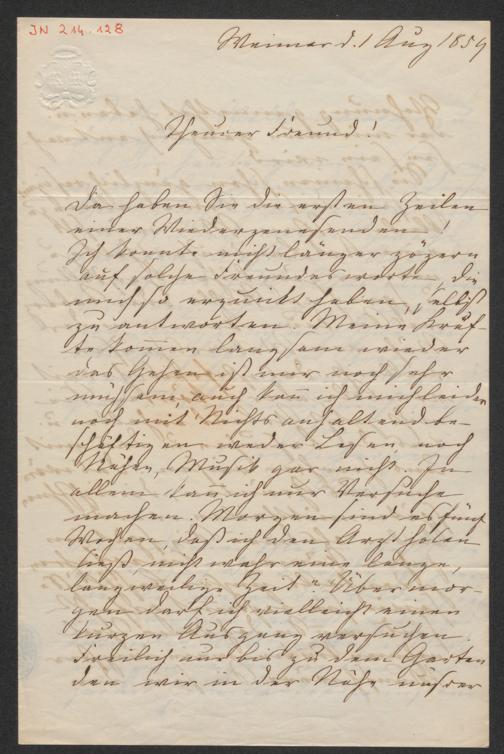 JN 214.128
Weimar d. 1 Aug 1859
Theurer Freund!
Da haben Sie die ersten Zeilen
einer Wiedergenesenden!
Ich konnte nicht länger zögern
auf solche Freundesworte, die
mich so erquickt haben, selbst
zu antworten. Meine Kräf-
te kommen langsam wieder
das Gehen ist mir noch sehr
mühsam auch kann ich mich leider
noch mit Nichts anhaltend be-
schäftigen weder Lesen noch
Nähen, Musik gar nicht. In
allem kann ich nur Versuche
machen. Morgen sind es fünf
Wochen, daß ich den Arzt holen
ließ, nicht wahr eine lange,
langweilige Zeit? Übermor-
gen darf ich vielleicht einen
kurzen Ausgang versuchen.
Freilich nur bis zu dem Garten
den wir in der Nähe unsrer